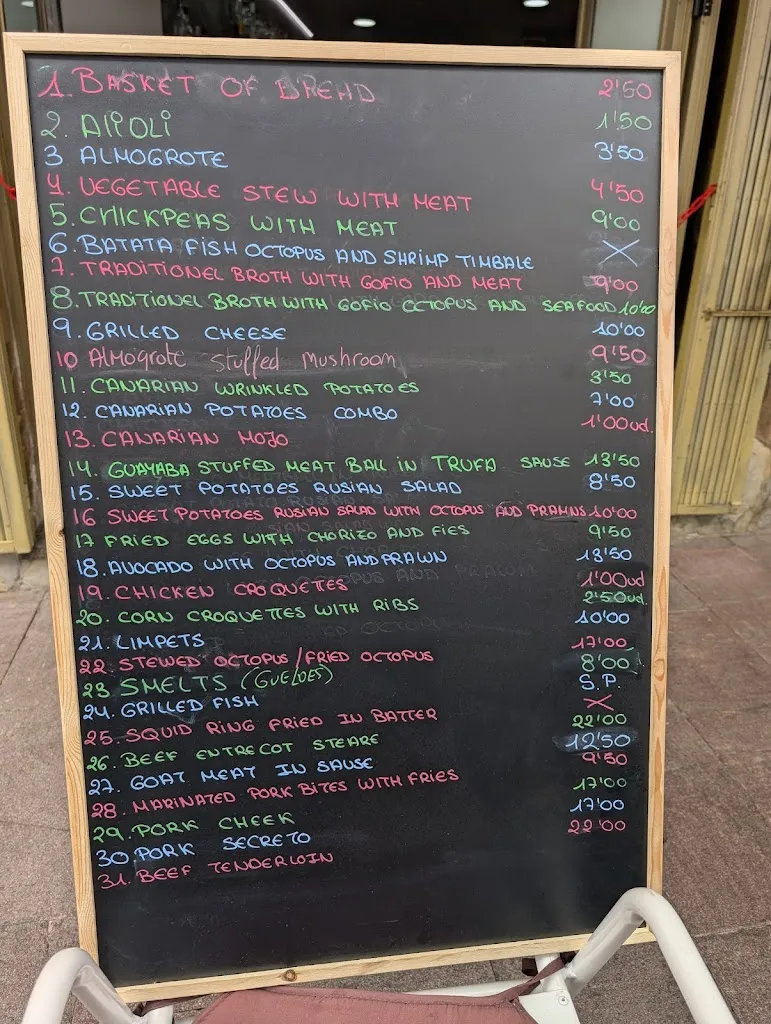 1. BASKET OF BREAD 2'50
2. AliOLi 1'50
3 ALMOGROTE 3'50
4. VEGETABLE STEW WITH MEAT 4'50
5. CHICKPEAS WITH MEAT 9'00
6. BATATA FISH OCTOPUS AND SHRIMP TIMBALE X
7. TRADITIONEL BROTH WITH GOFIO AND MEAT 9'00
8. TRADITIONEL BROTH WITH GOFIO OCTOPUS AND SEAFOOD 10'00
9. GRILLED CHEESE 10'00
10 Almogrote stuffed mushroom 9'50
11. CANARIAN WRINKLED POTATOES 3'50
12. CANARIAN POTATOES COMBO 7'00
13. CANARIAN MOJO 1'00ud.
14. GUAYABA STUFFED MEAT BALL IN TRUFA SAUSE 13'50
15. SWEET POTATOES RUSIAN SALAD 8'50
16 SWEET POTATOES RUSIAN SALAD WITH OCTOPUS AND PRAWNS 10'00
17 FRIED EGGS WITH CHORIZO AND FIES 9'50
18. AVOCADO WITH OCTOPUS AND PRAWN 13'50
19. CHICKEN CROQUETTES 1'00ud
20. CORN CROQUETTES WITH RIBS 2'50ud.
21. LIMPETS 10'00
22. STEWED OCTOPUS / FRIED OCTOPUS 17'00
23 SMELTS (GUELDES) 8'00
24. GRILLED FISH S.P.
25. SQUID RING FRIED IN BATTER X
26. BEEF ENTRECOT STEARE 22'00
27. GOAT MEAT IN SAUSE 12'50
28. MARINATED PORK BITES WITH FRIES 9'50
29. PORK CHEEK 17'00
30 PORK SECRETO 17'00
31. BEEF TENDERLOIN 22'00